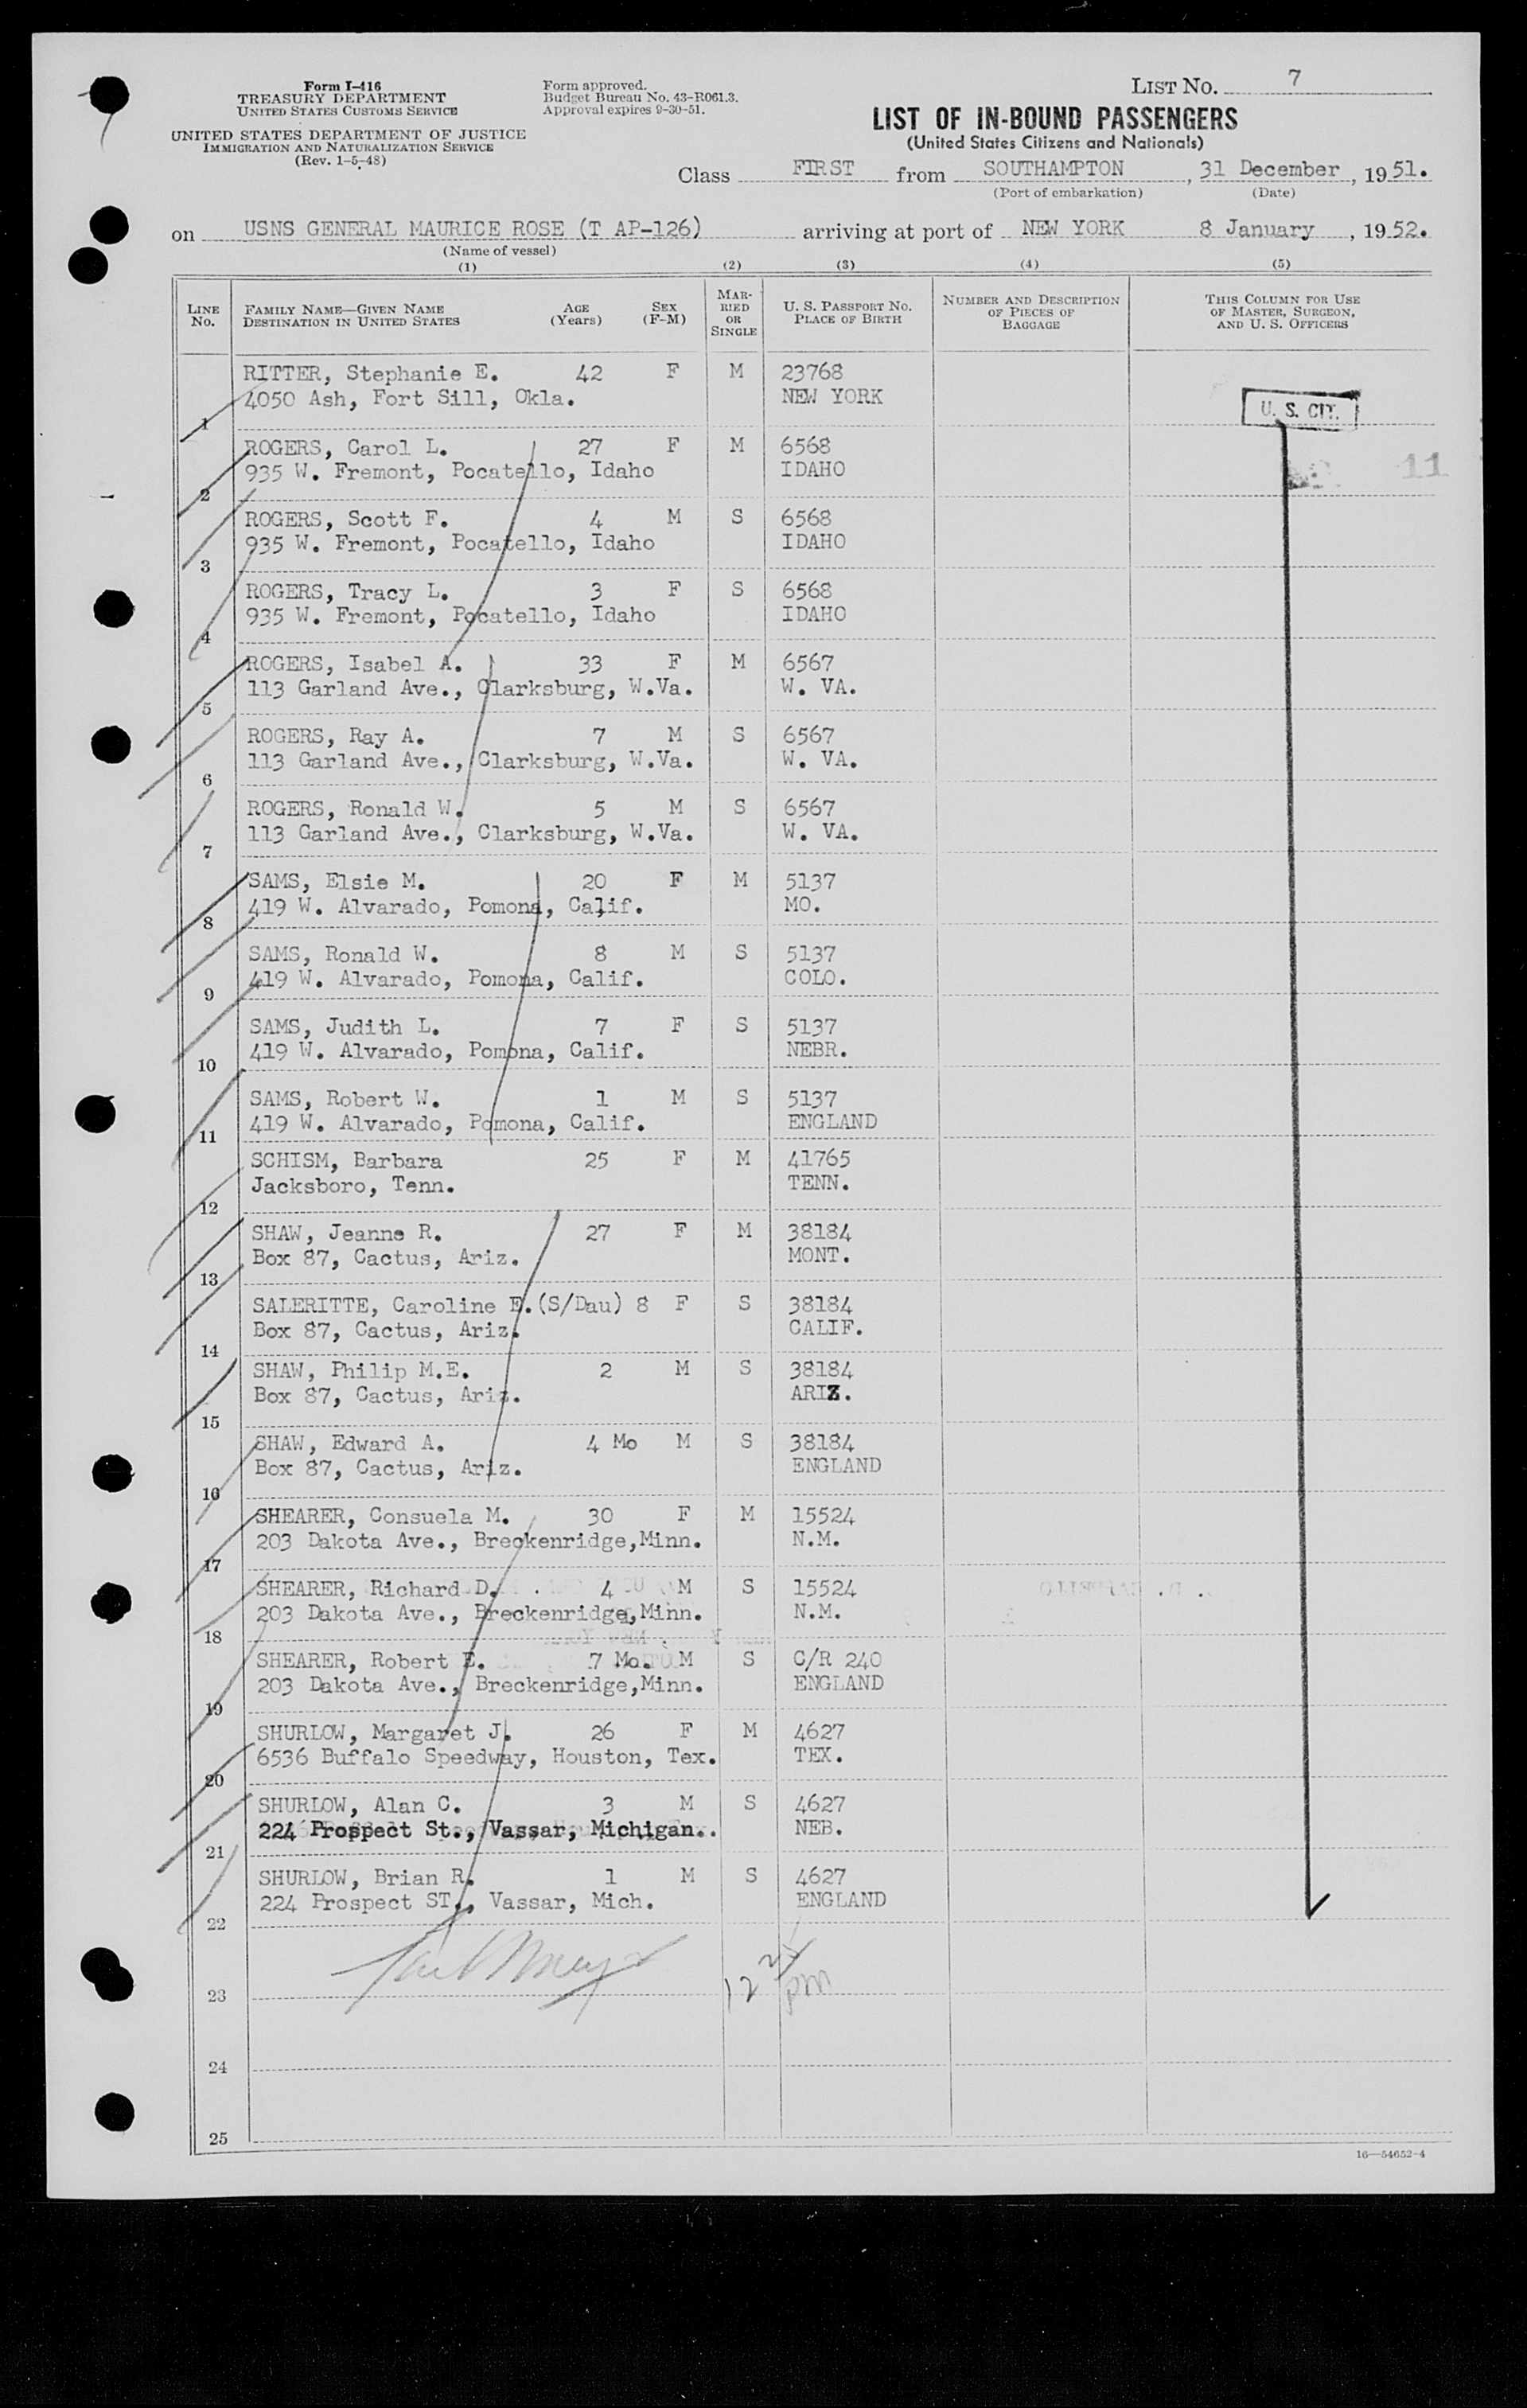 Form I-416
TREASURY DEPARTMENT
UNITED STATES CUSTOMS SERVICE
UNITED STATES DEPARTMENT OF JUSTICE
IMMIGRATION AND NATURALIZATION SERVICE
(Rev. 1-5-48)
Form approved.
Budget Bureau No. 43-R061.3.
Approval expires 9-30-51.
LIST NO. 7
LIST OF IN-BOUND PASSENGERS
(United States Citizens and Nationals)
Class FIRST from SOUTHAMPTON, 31 December, 1951.
(Port of embarkation) (Date)
on USNS GENERAL MAURICE ROSE (T AP-126) arriving at port of NEW YORK 8 January, 1952.
(Name of vessel)
(1) (2) (3) (4) (5)
LINE No. FAMILY NAME—GIVEN NAME DESTINATION IN UNITED STATES AGE (Years) SEX (F-M) MARRIED OR SINGLE U. S. PASSPORT NO. PLACE OF BIRTH NUMBER AND DESCRIPTION OF PIECES OF BAGGAGE THIS COLUMN FOR USE OF MASTER, SURGEON, AND U. S. OFFICERS
RITTER, Stephanie E. 42 F M 23768
4050 Ash, Fort Sill, Okla. NEW YORK
1 U. S. CIT.
ROGERS, Carol L. 27 F M 6568
935 W. Fremont, Pocatello, Idaho IDAHO 11
2
ROGERS, Scott F. 4 M S 6568
935 W. Fremont, Pocatello, Idaho IDAHO
3
ROGERS, Tracy L. 3 F S 6568
935 W. Fremont, Pocatello, Idaho IDAHO
4
ROGERS, Isabel A. 33 F M 6567
113 Garland Ave., Clarksburg, W.Va. W. VA.
5
ROGERS, Ray A. 7 M S 6567
113 Garland Ave., Clarksburg, W.Va. W. VA.
6
ROGERS, Ronald W. 5 M S 6567
113 Garland Ave., Clarksburg, W.Va. W. VA.
7
SAMS, Elsie M. 20 F M 5137
419 W. Alvarado, Pomona, Calif. MO.
8
SAMS, Ronald W. 8 M S 5137
419 W. Alvarado, Pomona, Calif. COLO.
9
SAMS, Judith L. 7 F S 5137
419 W. Alvarado, Pomona, Calif. NEBR.
10
SAMS, Robert W. 1 M S 5137
419 W. Alvarado, Pomona, Calif. ENGLAND
11
SCHISM, Barbara 25 F M 41765
Jacksboro, Tenn. TENN.
12
SHAW, Jeanne R. 27 F M 38184
Box 87, Cactus, Ariz. MONT.
13
SALERITTE, Caroline E.(S/Dau) 8 F S 38184
Box 87, Cactus, Ariz. CALIF.
14
SHAW, Philip M.E. 2 M S 38184
Box 87, Cactus, Ariz. ARIZ.
15
SHAW, Edward A. 4 Mo M S 38184
Box 87, Cactus, Ariz. ENGLAND
16
SHEARER, Consuela M. 30 F M 15524
203 Dakota Ave., Breckenridge,Minn. N.M.
17
SHEARER, Richard D. 4 M S 15524
203 Dakota Ave., Breckenridge,Minn. N.M.
18
SHEARER, Robert E. 7 Mo. M S C/R 240
203 Dakota Ave., Breckenridge,Minn. ENGLAND
19
SHURLOW, Margaret J. 26 F M 4627
6536 Buffalo Speedway, Houston, Tex. TEX.
20
SHURLOW, Alan C. 3 M S 4627
224 Prospect St., Vassar, Michigan. NEB.
21
SHURLOW, Brian R. 1 M S 4627
224 Prospect ST., Vassar, Mich. ENGLAND
22
12 25 pm
23
24
25
16—54652-4